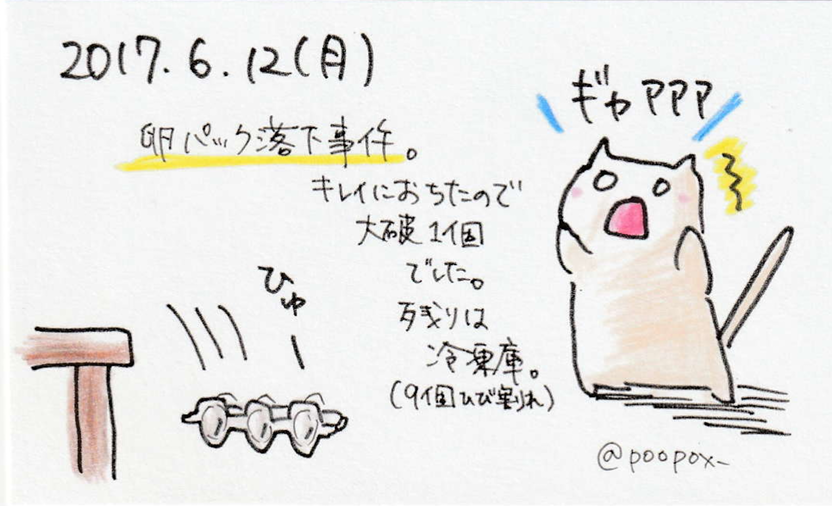 2017.6.12(月)
ギャアアア
卵パック落下事件。
キレイにおちたので
大破1個
でした。
残りは
冷凍庫。
(9個ひび割れ)
ひゅー
@poopox_